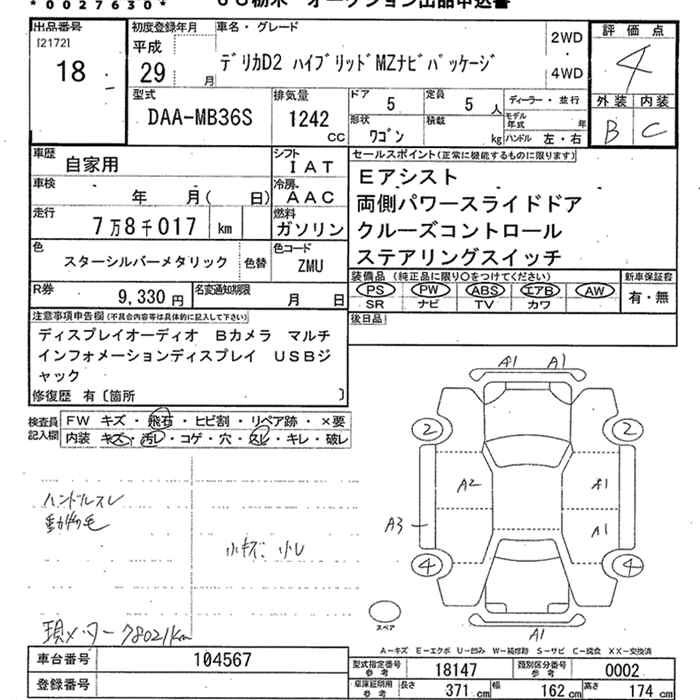 * 0027630 *
出品番号
[2172]
18
初度登録年月
平成
29 月
車名・グレード
デリカD2 ハイブリッドMZナビパッケージ
2WD
・
4WD
評価点
4
外装 内装
B C
型式
DAA-MB36S
排気量
1242
CC
ドア
5
定員
5 人
形状
ワゴン
積載
kg
ディーラー・並行
モデル年式 年
ハンドル 左・右
車歴
自家用
シフト
IAT
車検
年 月( 日)
冷房
AAC
走行
7万8千017 km
燃料
ガソリン
色
スターシルバーメタリック
色替
色コード
ZMU
R券
9,330 円
名変通知期限
月 日
セールスポイント(正常に機能するものに限ります)
Eアシスト
両側パワースライドドア
クルーズコントロール
ステアリングスイッチ
装備品 (純正品に限り○をつけてください)
PS PW ABS エアB AW
SR ナビ TV カワ
新車保証書
有・無
後日品
注意事項申告欄(不具合内容等は具体的に記入して下さい)
ディスプレイオーディオ Bカメラ マルチ
インフォメーションディスプレイ USBジ
ャック
修復歴 有〔箇所 〕
検査員
記入欄
FW キズ・飛石・ヒビ割・リペア跡・×要
内装 キズ・汚レ・コゲ・穴・スレ・キレ・破レ
ハンドルスレ
動物の毛
小キズ、小U
現メーター 78021km
A1 A1
2 2
A2 A1
A3 A1
4 4
スペア
A1
A-キズ E-エクボ U-凹み W-補修跡 S-サビ C-腐食 XX-交換済
車台番号
104567
登録番号
型式指定番号
参考
18147
類別区分番号
参考
0002
車庫証明用
参考
長さ 371 cm
幅 162 cm
高さ 174 cm